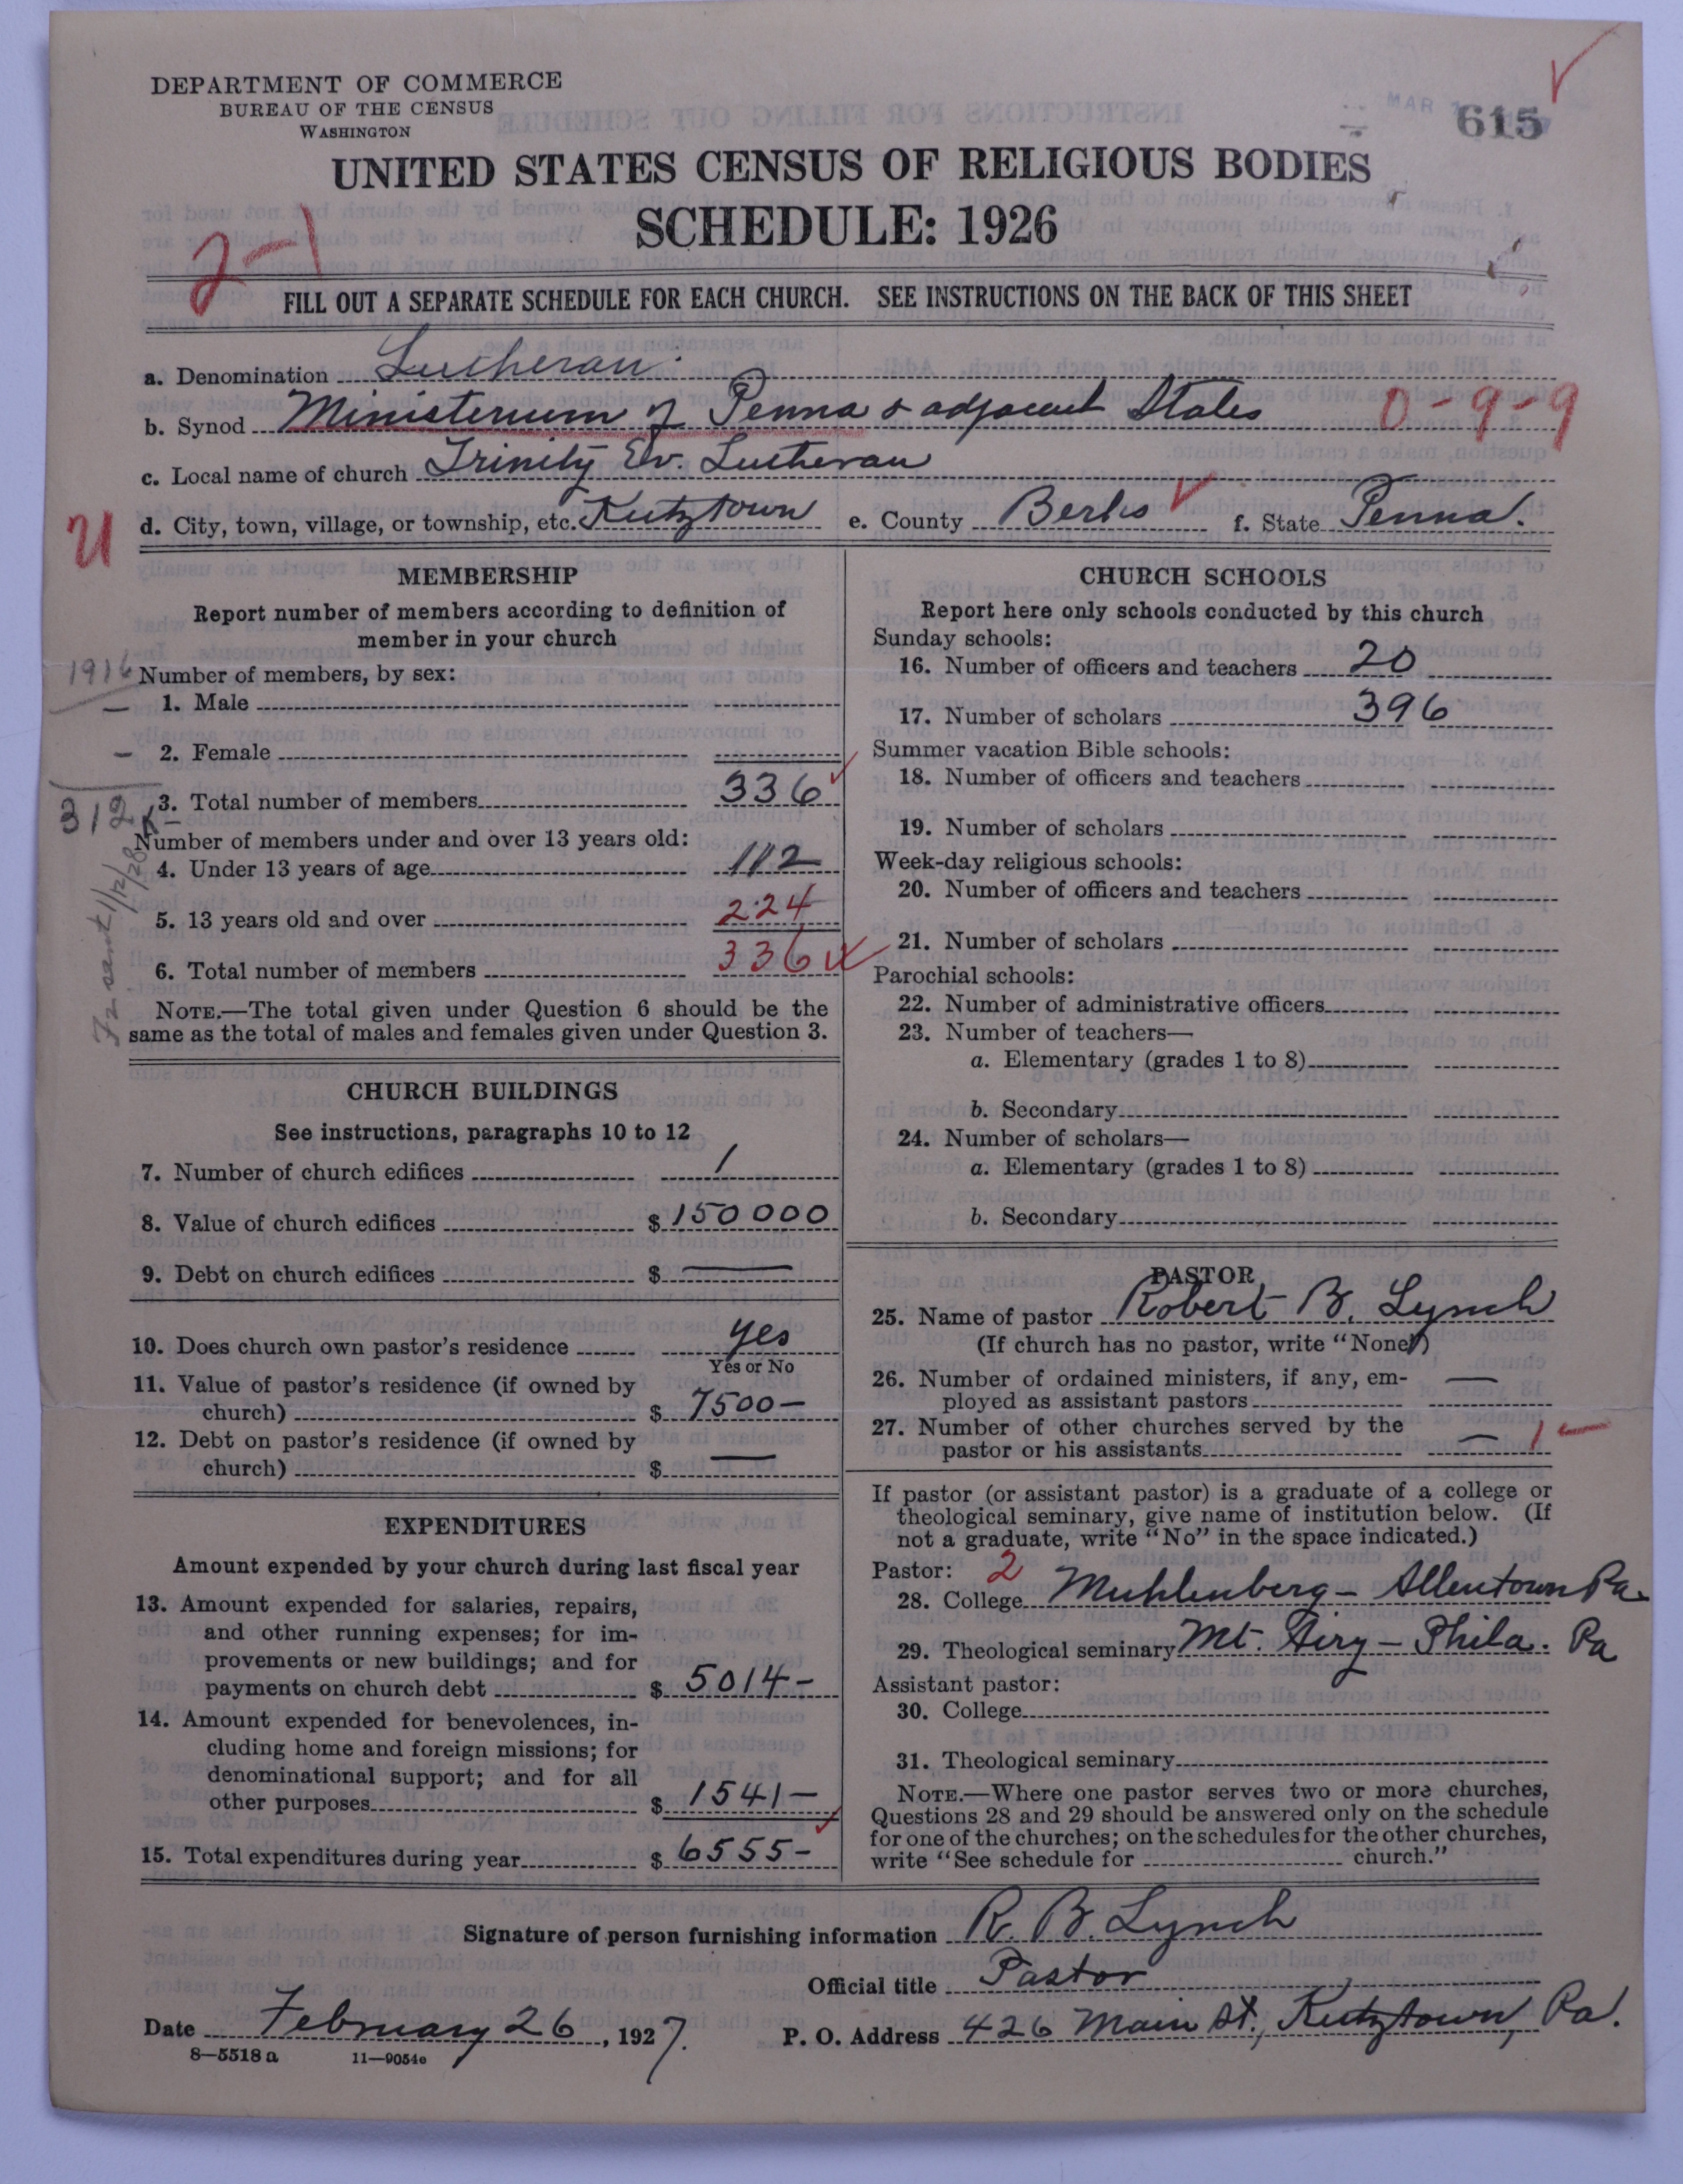 DEPARTMENT OF COMMERCE
BUREAU OF THE CENSUS
WASHINGTON
MAR
615
UNITED STATES CENSUS OF RELIGIOUS BODIES
SCHEDULE: 1926
2-1
FILL OUT A SEPARATE SCHEDULE FOR EACH CHURCH. SEE INSTRUCTIONS ON THE BACK OF THIS SHEET
a. Denomination Lutheran
b. Synod Ministerium of Penna & adjacent States 0-9-9
c. Local name of church Trinity Ev. Lutheran
U d. City, town, village, or township, etc. Kutztown e. County Berks f. State Penna.
MEMBERSHIP
Report number of members according to definition of
member in your church
1916 Number of members, by sex:
— 1. Male
— 2. Female
312 3. Total number of members 336
Number of members under and over 13 years old:
4. Under 13 years of age 112
5. 13 years old and over 224
6. Total number of members 336
NOTE.—The total given under Question 6 should be the
same as the total of males and females given under Question 3.
CHURCH BUILDINGS
See instructions, paragraphs 10 to 12
7. Number of church edifices 1
8. Value of church edifices $ 150000
9. Debt on church edifices $ —
10. Does church own pastor's residence yes
Yes or No
11. Value of pastor's residence (if owned by
church) $ 7500—
12. Debt on pastor's residence (if owned by
church) $ —
EXPENDITURES
Amount expended by your church during last fiscal year
13. Amount expended for salaries, repairs,
and other running expenses; for im-
provements or new buildings; and for
payments on church debt $ 5014—
14. Amount expended for benevolences, in-
cluding home and foreign missions; for
denominational support; and for all
other purposes $ 1541—
15. Total expenditures during year $ 6555—
CHURCH SCHOOLS
Report here only schools conducted by this church
Sunday schools:
16. Number of officers and teachers 20
17. Number of scholars 396
Summer vacation Bible schools:
18. Number of officers and teachers
19. Number of scholars
Week-day religious schools:
20. Number of officers and teachers
21. Number of scholars
Parochial schools:
22. Number of administrative officers
23. Number of teachers—
a. Elementary (grades 1 to 8)
b. Secondary
24. Number of scholars—
a. Elementary (grades 1 to 8)
b. Secondary
PASTOR
25. Name of pastor Robert B. Lynch
(If church has no pastor, write "None")
26. Number of ordained ministers, if any, em-
ployed as assistant pastors —
27. Number of other churches served by the
pastor or his assistants — 1
If pastor (or assistant pastor) is a graduate of a college or
theological seminary, give name of institution below. (If
not a graduate, write "No" in the space indicated.)
Pastor: 2
28. College Muhlenberg — Allentown Pa.
29. Theological seminary Mt. Airy — Phila. Pa
Assistant pastor:
30. College
31. Theological seminary
NOTE.—Where one pastor serves two or more churches,
Questions 28 and 29 should be answered only on the schedule
for one of the churches; on the schedules for the other churches,
write "See schedule for church."
Signature of person furnishing information R. B. Lynch
Official title Pastor
Date February 26, 1927. P. O. Address 426 Main St., Kutztown, Pa.
8—5518 a 11—9054e